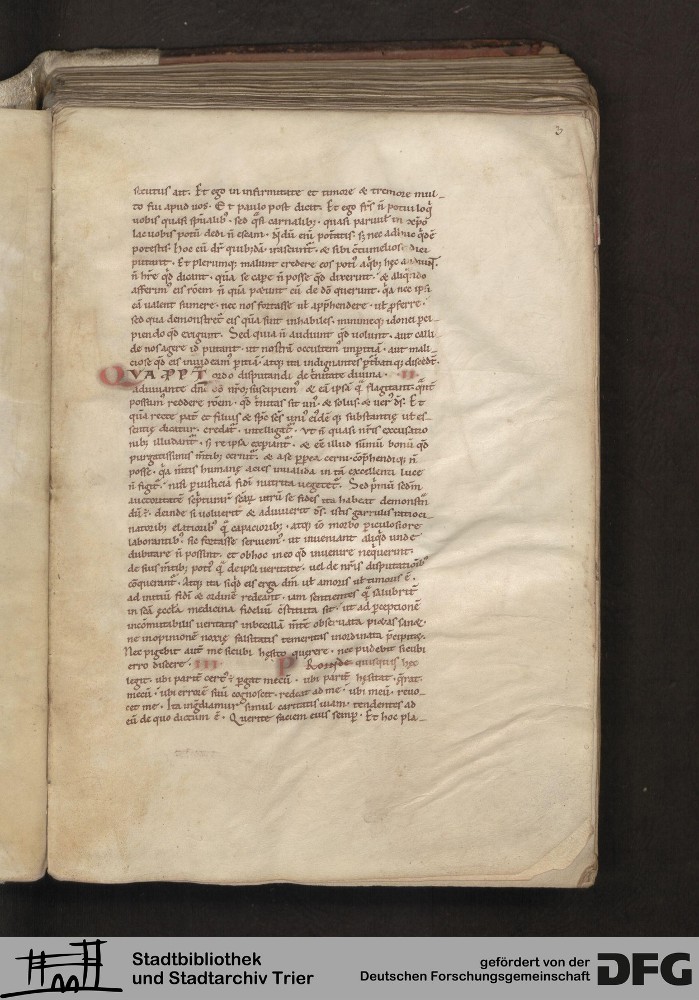 3
secutus ait. Et ego in infirmitate et timore & tremore mul-
to fui apud vos. Et paulo post dicit. Et ego frs̄ n̄ potui loq̄
vobis quasi sp̄ualib; sed q̄si carnalib; quasi parvul' in xp̄o
lac vobis potū dedi n̄ escam. n̄dū enī poteratis. s; nec adhuc q̄dē
potestis. hoc cū dr̄ quib;dā irascunt̄. & sibi c̄tumeliose dici
putant. Et plerumq; malunt credere eos poti' a q̄b; hec audiunt
n̄ hr̄e qd̄ dicant. quā se cape n̄ posse qd̄ dixerint. & aliq̄ndo
afferim' eis rōem n̄ quā petunt cū de dō querunt. q̄a nec ipsi
eā valent sumere. nec nos fortasse vel app̄hendere. vel p̄ferre.
sed qua demonstret̄ eis quā sint inhabiles. minimeq; idonei p̄ci-
piendo qd̄ exigunt. Sed quia n̄ audiunt qd̄ volunt. aut calli-
de nos agere id putant. ut nostrā occultem' imp̄itiā. aut mali-
ciose qd̄ eis invideam' p̄itiā. atq; ita indignantes p̄t̄bati q; discedt̄.
QVAPPT ordo disputandi de t̄nitate divina. II.
adiuvante dn̄o dō nr̄o; suscipiem' & eā ipsā q̄ flagitant. q̄nt̄
possum' reddere rōem. qd̄ t̄nitas sit un' & solus. & ver' ds̄. Et
quā recte pat̄ et filius & sp̄c sc̄s uni' ei'dē q; substantie ul' es-
sentie dicatur. credat̄. intelligat̄. ut n̄ quasi nr̄is excusatio-
nib; illudant̄. s; re ipsa expiant̄. & eē illud sūmū bonū qd̄
purgatissimis m̄tib; cernit̄. & a se p̄p̄ea cerni. c̄p̄hendi q; n̄
posse. q̄a m̄tis humanę acies invalida in tā excellenti luce
n̄ figit̄. nisi p̄ iusticiā fidī nutrita vegetet̄. Sed p̄mū sedm̄
auctoritatē sc̄pturar̄ scar̄ utrū se fides ita habeat demonstn̄-
dū ē. deinde si voluerit & adiuverit ds̄. istis garrulis ratioci-
natorib; elatiorib; q̄ capaciorib; atq; iō morbo p̄iculosiore
laborantib; sic fortasse serviem'. ut inveniant aliq̄d unde
dubitare n̄ possint. et ob hoc in eo qd̄ invenire nequierint.
de suis m̄tib; poti' q̄ de ipsa veritate. vel de nr̄is disputationib;
c̄querant̄. Atq; ita siq̄d eis erga dm̄ vel amoris vel timoris ē.
ad initiū fidī & ordinē redeant. iam sentientes q̄ salubrit̄
in scā ęccl'a medicina fidelium c̄stituta sit. ut ad p̄ceptionē
incōmutabilis veritatis inbecillā m̄tē observata pietas sanet.
ne in opinionē noxię falsitatis temeritas inordinata p̄cipitet̄.
Nec pigebit autē me sicubi hęsito querere. nec pudebit sicubi
erro discere. III. PRoinde quisquis hęc
legit. ubi parit̄ cert' ē pergat mecū. ubi parit̄ hęsitat. q̄rat
mecū. ubi errorē suū cognoscit. redeat ad me. ubi meū. revo-
cet me. Ita ingrediamur simul caritatis viam. tendentes ad
eū de quo dictum ē. Querite faciem eius semp̄. Et hoc pla-
Stadtbibliothek
und Stadtarchiv Trier
gefördert von der
Deutschen Forschungsgemeinschaft
DFG